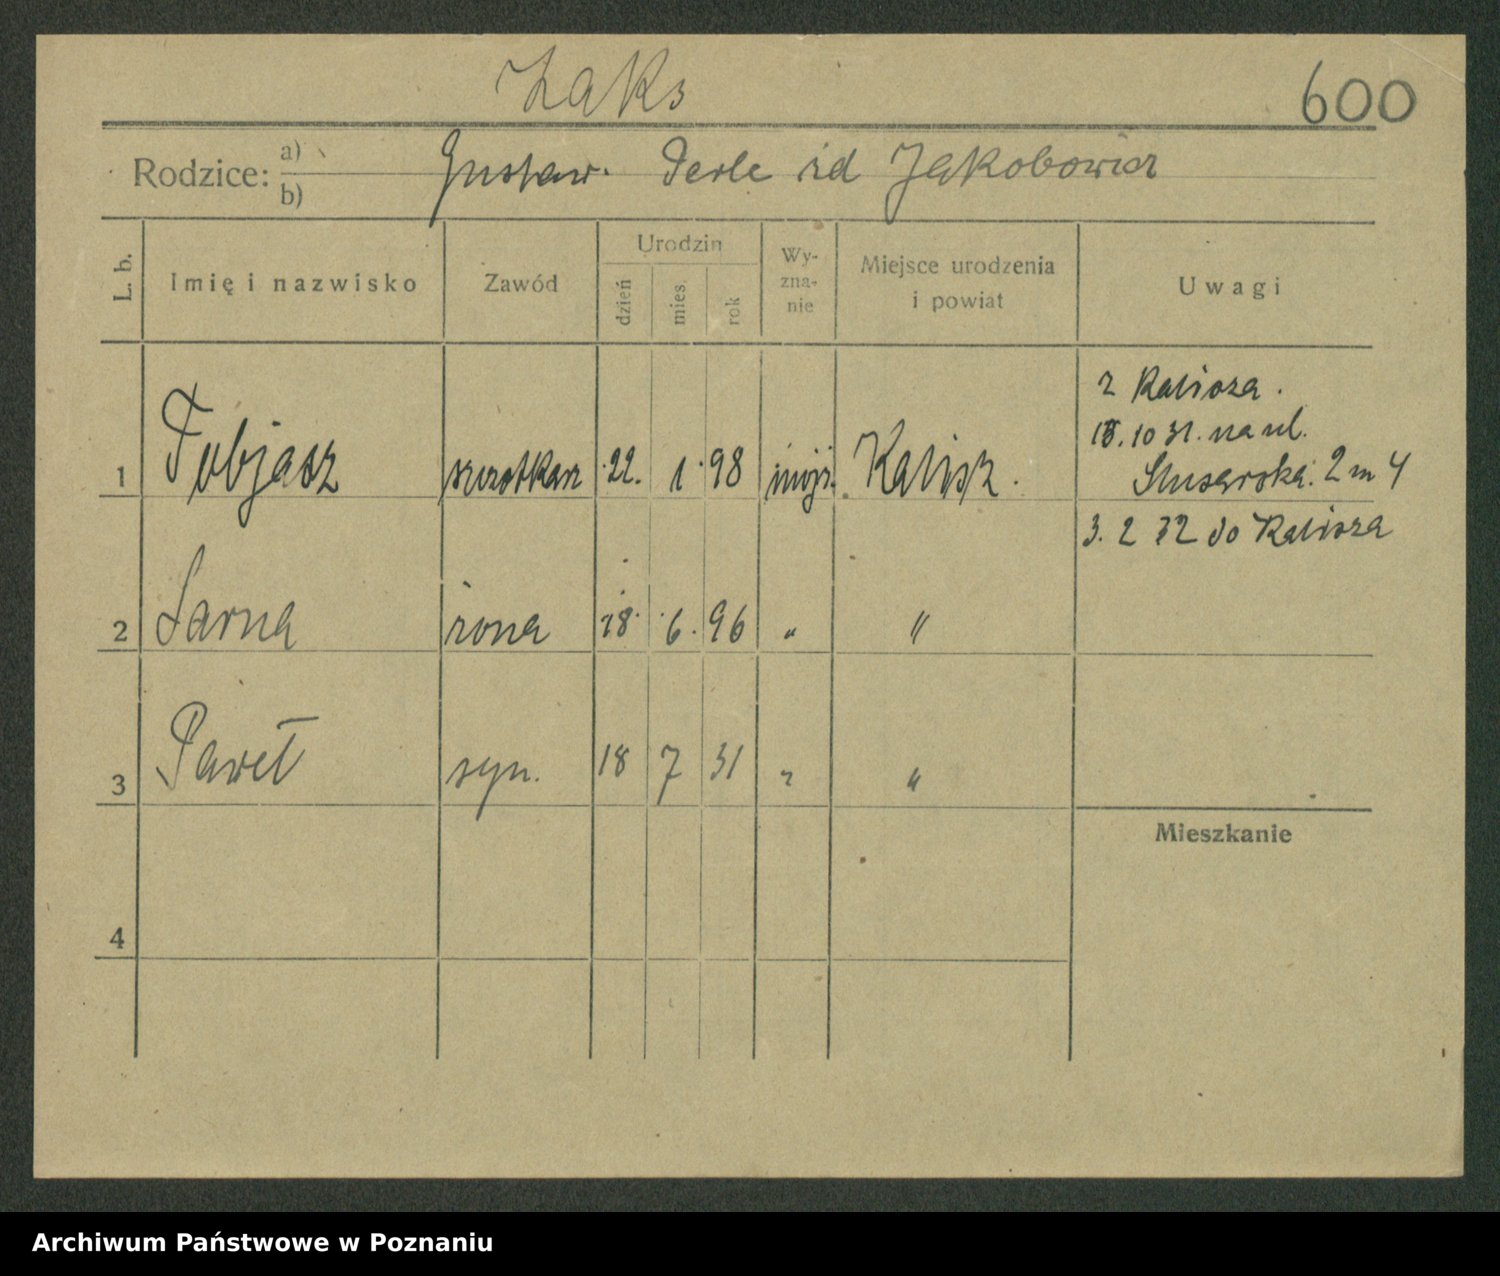 Zaks
600
Rodzice: a)
b)
Gustaw. Perle zd Jakobowicz
L. b.
Imię i nazwisko
Zawód
Urodzin
dzień
mies.
rok
Wy-
zna-
nie
Miejsce urodzenia
i powiat
Uwagi
1 Tobjasz szczotkarz 22. 1 98 mojż. Kalisz.
z Kalisza.
15. 10 31. na ul.
Slusarska. 2 m 4
3. 2 32 do Kalisza
2 Sarna żona 28. 6. 96 " "
3 Paweł syn. 18 7 31 " "
Mieszkanie
4
Archiwum Państwowe w Poznaniu